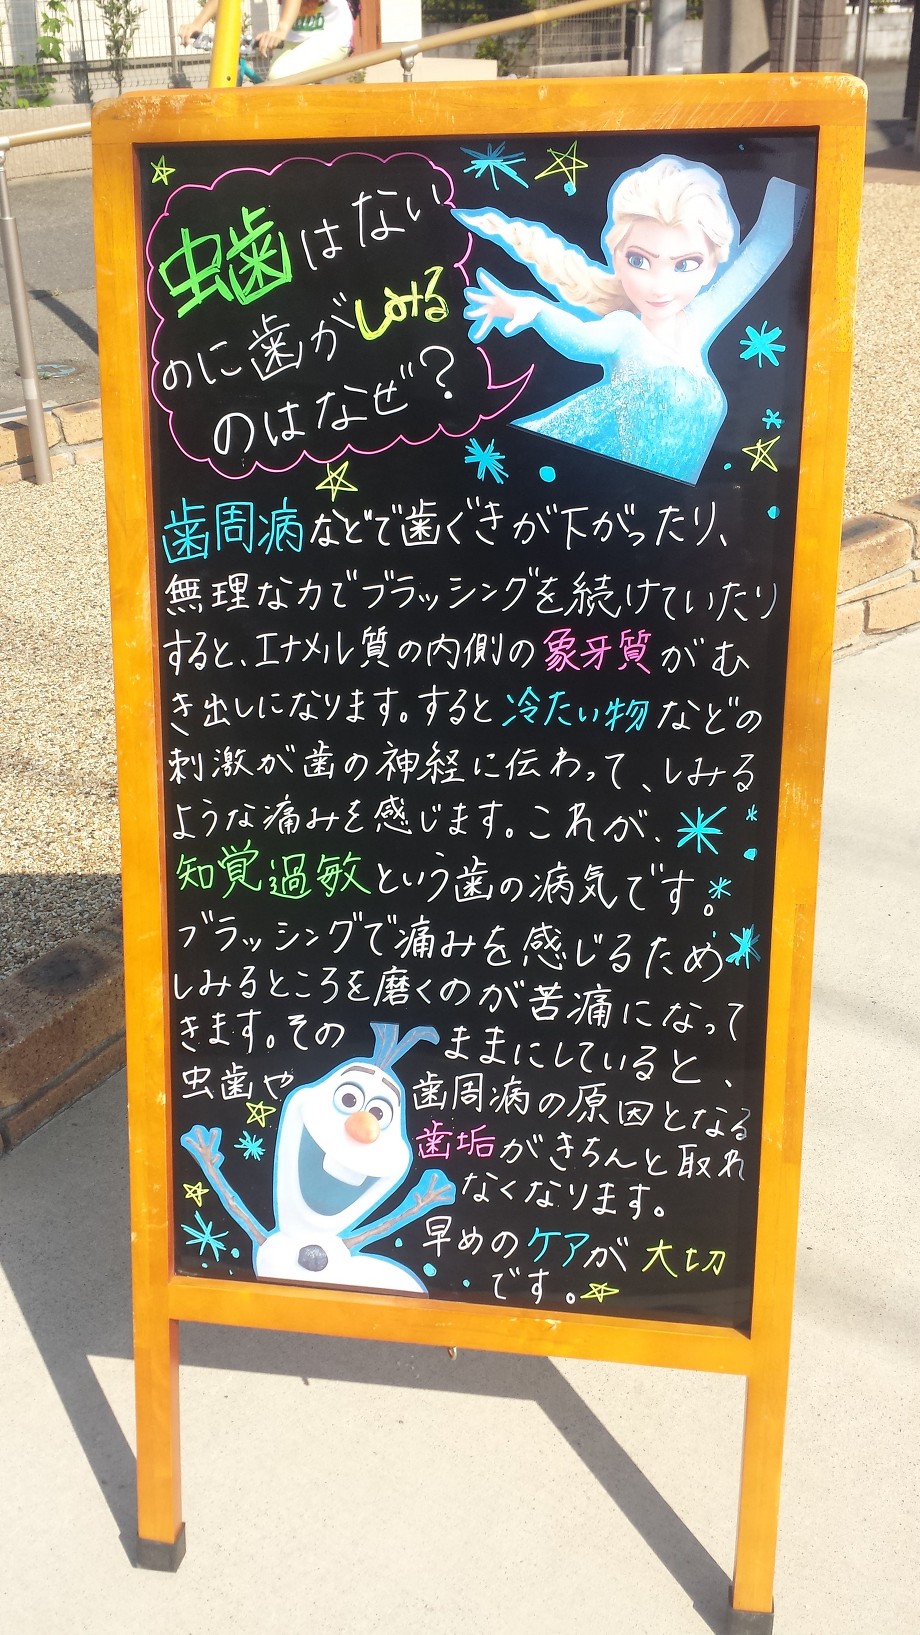 虫歯はない
のに歯がしみる
のはなぜ?
歯周病などで歯ぐきが下がったり、
無理な力でブラッシングを続けていたり
すると、エナメル質の内側の象牙質がむ
き出しになります。すると冷たい物などの
刺激が歯の神経に伝わって、しみる
ような痛みを感じます。これが、
知覚過敏という歯の病気です。
ブラッシングで痛みを感じるため
しみるところを磨くのが苦痛になって
きます。その ままにしていると、
虫歯や 歯周病の原因となる
歯垢がきちんと取れ
なくなります。
早めのケアが大切
です。